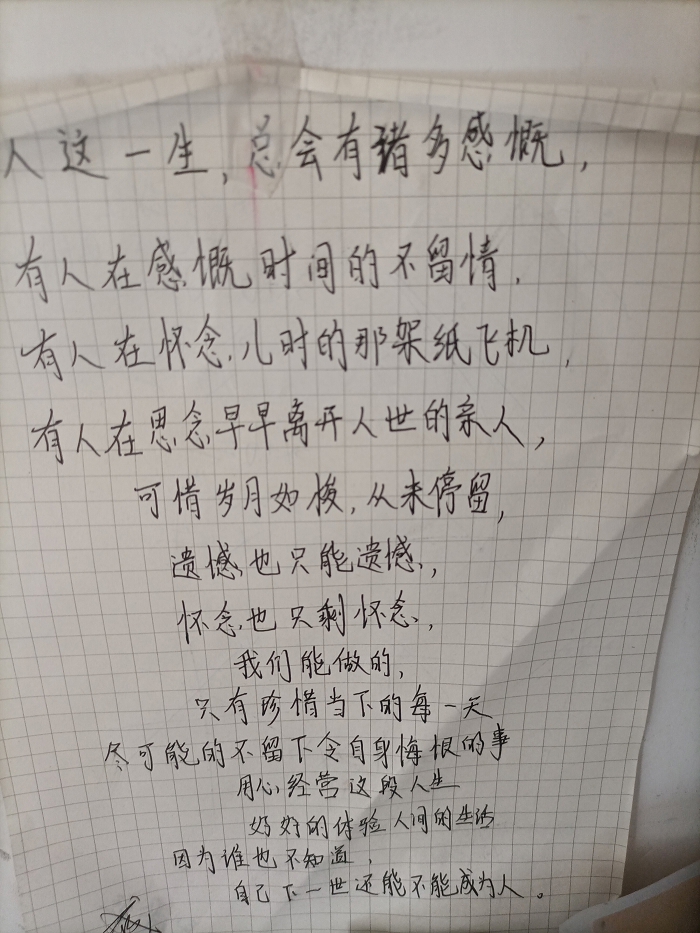 人这一生，总会有诸多感慨，
有人在感慨时间的不留情，
有人在怀念儿时的那架纸飞机，
有人在思念早早离开人世的亲人，
可惜岁月如梭，从未停留，
遗憾也只能遗憾，
怀念也只剩怀念，
我们能做的，
只有珍惜当下的每一天
尽可能的不留下令自身悔恨的事
用心经营这段人生
好好的体验人间的生活
因为谁也不知道，
自己下一世还能不能成为人。